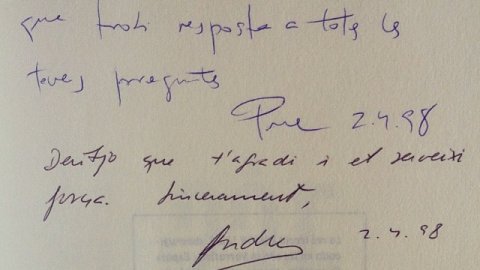 que trobi resposta a totes les
teves preguntes
2.4.98
Desitjo que t'agradi i et serveixi
força. Sincerament,
Andreu 2.4.98